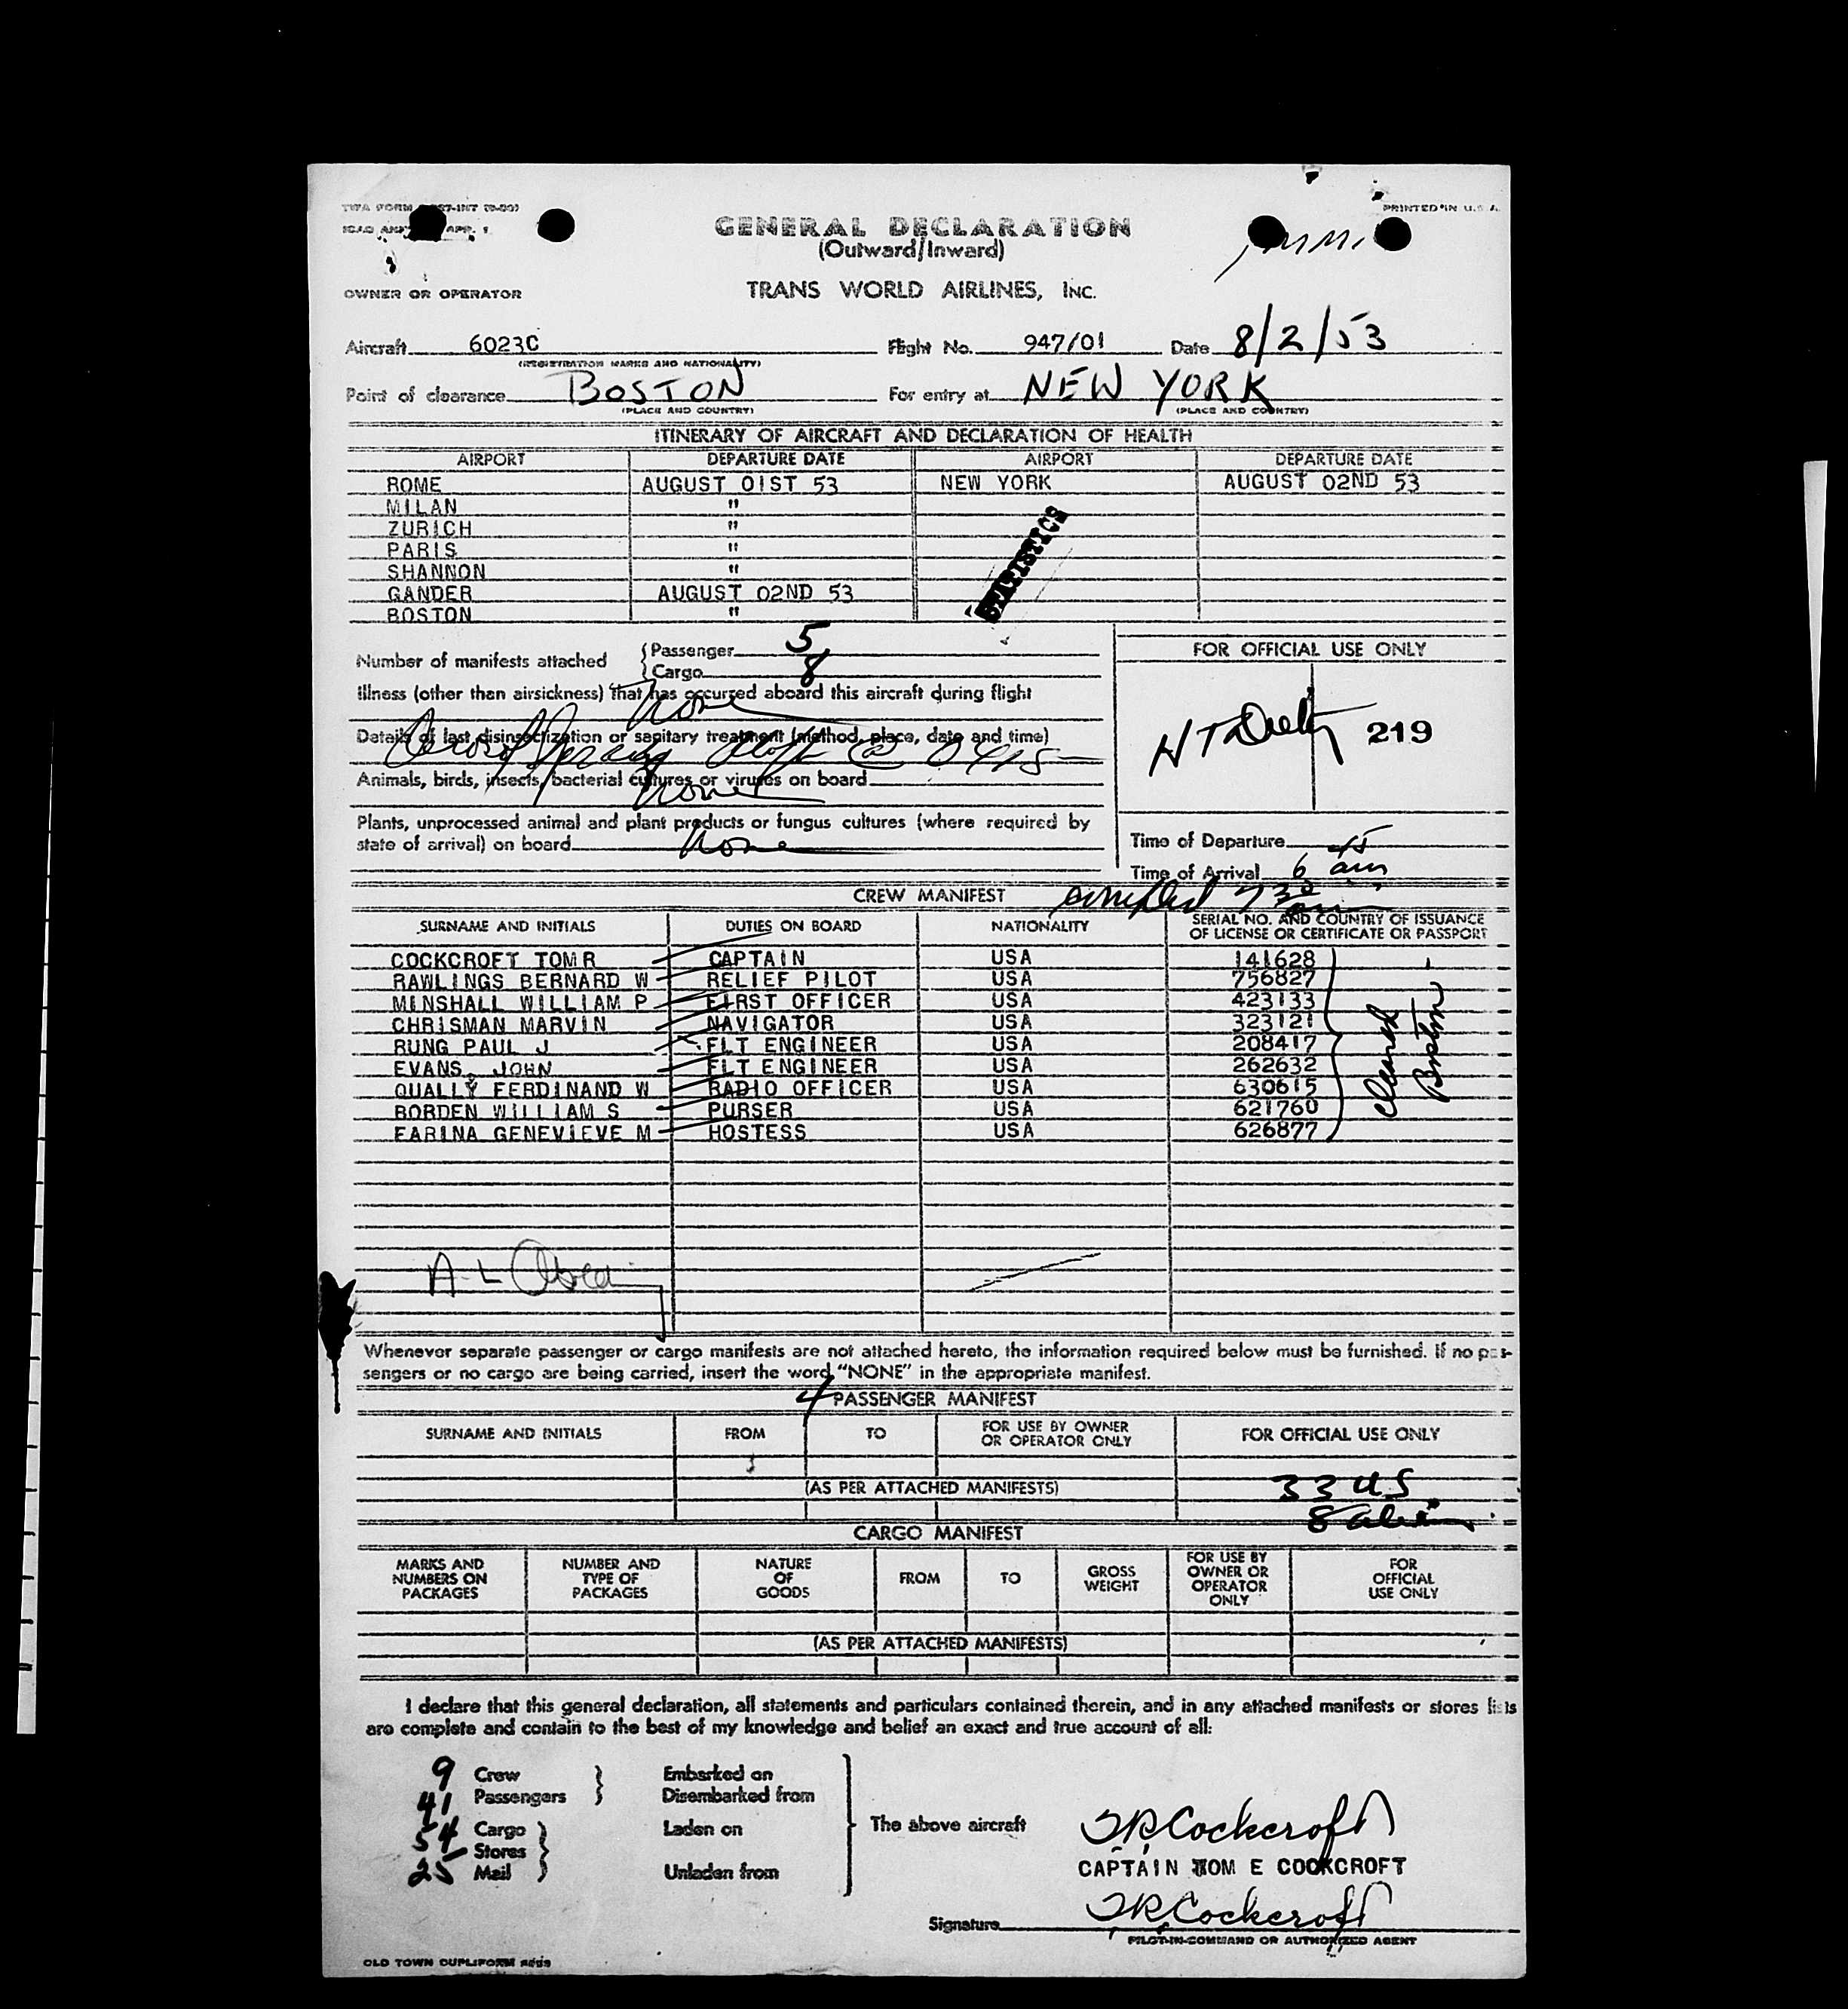 PRINTED IN U.S.A.
GENERAL DECLARATION
(Outward/Inward)
OWNER OR OPERATOR TRANS WORLD AIRLINES, INC.
Aircraft 6023C Flight No. 947/01 Date 8/2/53
(REGISTRATION MARKS AND NATIONALITY)
Point of clearance BOSTON For entry at NEW YORK
(PLACE AND COUNTRY) (PLACE AND COUNTRY)
ITINERARY OF AIRCRAFT AND DECLARATION OF HEALTH
AIRPORT DEPARTURE DATE AIRPORT DEPARTURE DATE
ROME AUGUST 01ST 53 NEW YORK AUGUST 02ND 53
MILAN "
ZURICH "
PARIS "
SHANNON "
GANDER AUGUST 02ND 53
BOSTON "
STATISTICS
Number of manifests attached Passenger 5
Cargo 8
FOR OFFICIAL USE ONLY
Illness (other than airsickness) that has occurred aboard this aircraft during flight
None
Details of last disinsectization or sanitary treatment (method, place, date and time)
219
Animals, birds, insects, bacterial cultures or viruses on board
None
Plants, unprocessed animal and plant products or fungus cultures (where required by
state of arrival) on board None
Time of Departure
Time of Arrival 6 45 am
CREW MANIFEST
SURNAME AND INITIALS DUTIES ON BOARD NATIONALITY SERIAL NO. AND COUNTRY OF ISSUANCE OF LICENSE OR CERTIFICATE OR PASSPORT
COCKCROFT TOM R CAPTAIN USA 141628
RAWLINGS BERNARD W RELIEF PILOT USA 756827
MINSHALL WILLIAM P FIRST OFFICER USA 423133
CHRISMAN MARVIN NAVIGATOR USA 323121
RUNG PAUL J FLT ENGINEER USA 208417
EVANS JOHN FLT ENGINEER USA 262632
QUALLY FERDINAND W RADIO OFFICER USA 630615
BORDEN WILLIAM S PURSER USA 621760
FARINA GENEVIEVE M HOSTESS USA 626877
Cleared Boston
Whenever separate passenger or cargo manifests are not attached hereto, the information required below must be furnished. If no pas-
sengers or no cargo are being carried, insert the word "NONE" in the appropriate manifest.
4 PASSENGER MANIFEST
SURNAME AND INITIALS FROM TO FOR USE BY OWNER OR OPERATOR ONLY FOR OFFICIAL USE ONLY
(AS PER ATTACHED MANIFESTS) 33 US
8 alien
CARGO MANIFEST
MARKS AND NUMBERS ON PACKAGES NUMBER AND TYPE OF PACKAGES NATURE OF GOODS FROM TO GROSS WEIGHT FOR USE BY OWNER OR OPERATOR ONLY FOR OFFICIAL USE ONLY
(AS PER ATTACHED MANIFESTS)
I declare that this general declaration, all statements and particulars contained therein, and in any attached manifests or stores lists
are complete and contain to the best of my knowledge and belief an exact and true account of all:
9 Crew Embarked on
41 Passengers Disembarked from
54 Cargo Laden on The above aircraft TRCockcroft
Stores
25 Mail Unladen from CAPTAIN TOM E COCKCROFT
Signature TRCockcroft
PILOT-IN-COMMAND OR AUTHORIZED AGENT
OLD TOWN DUPLIFORM